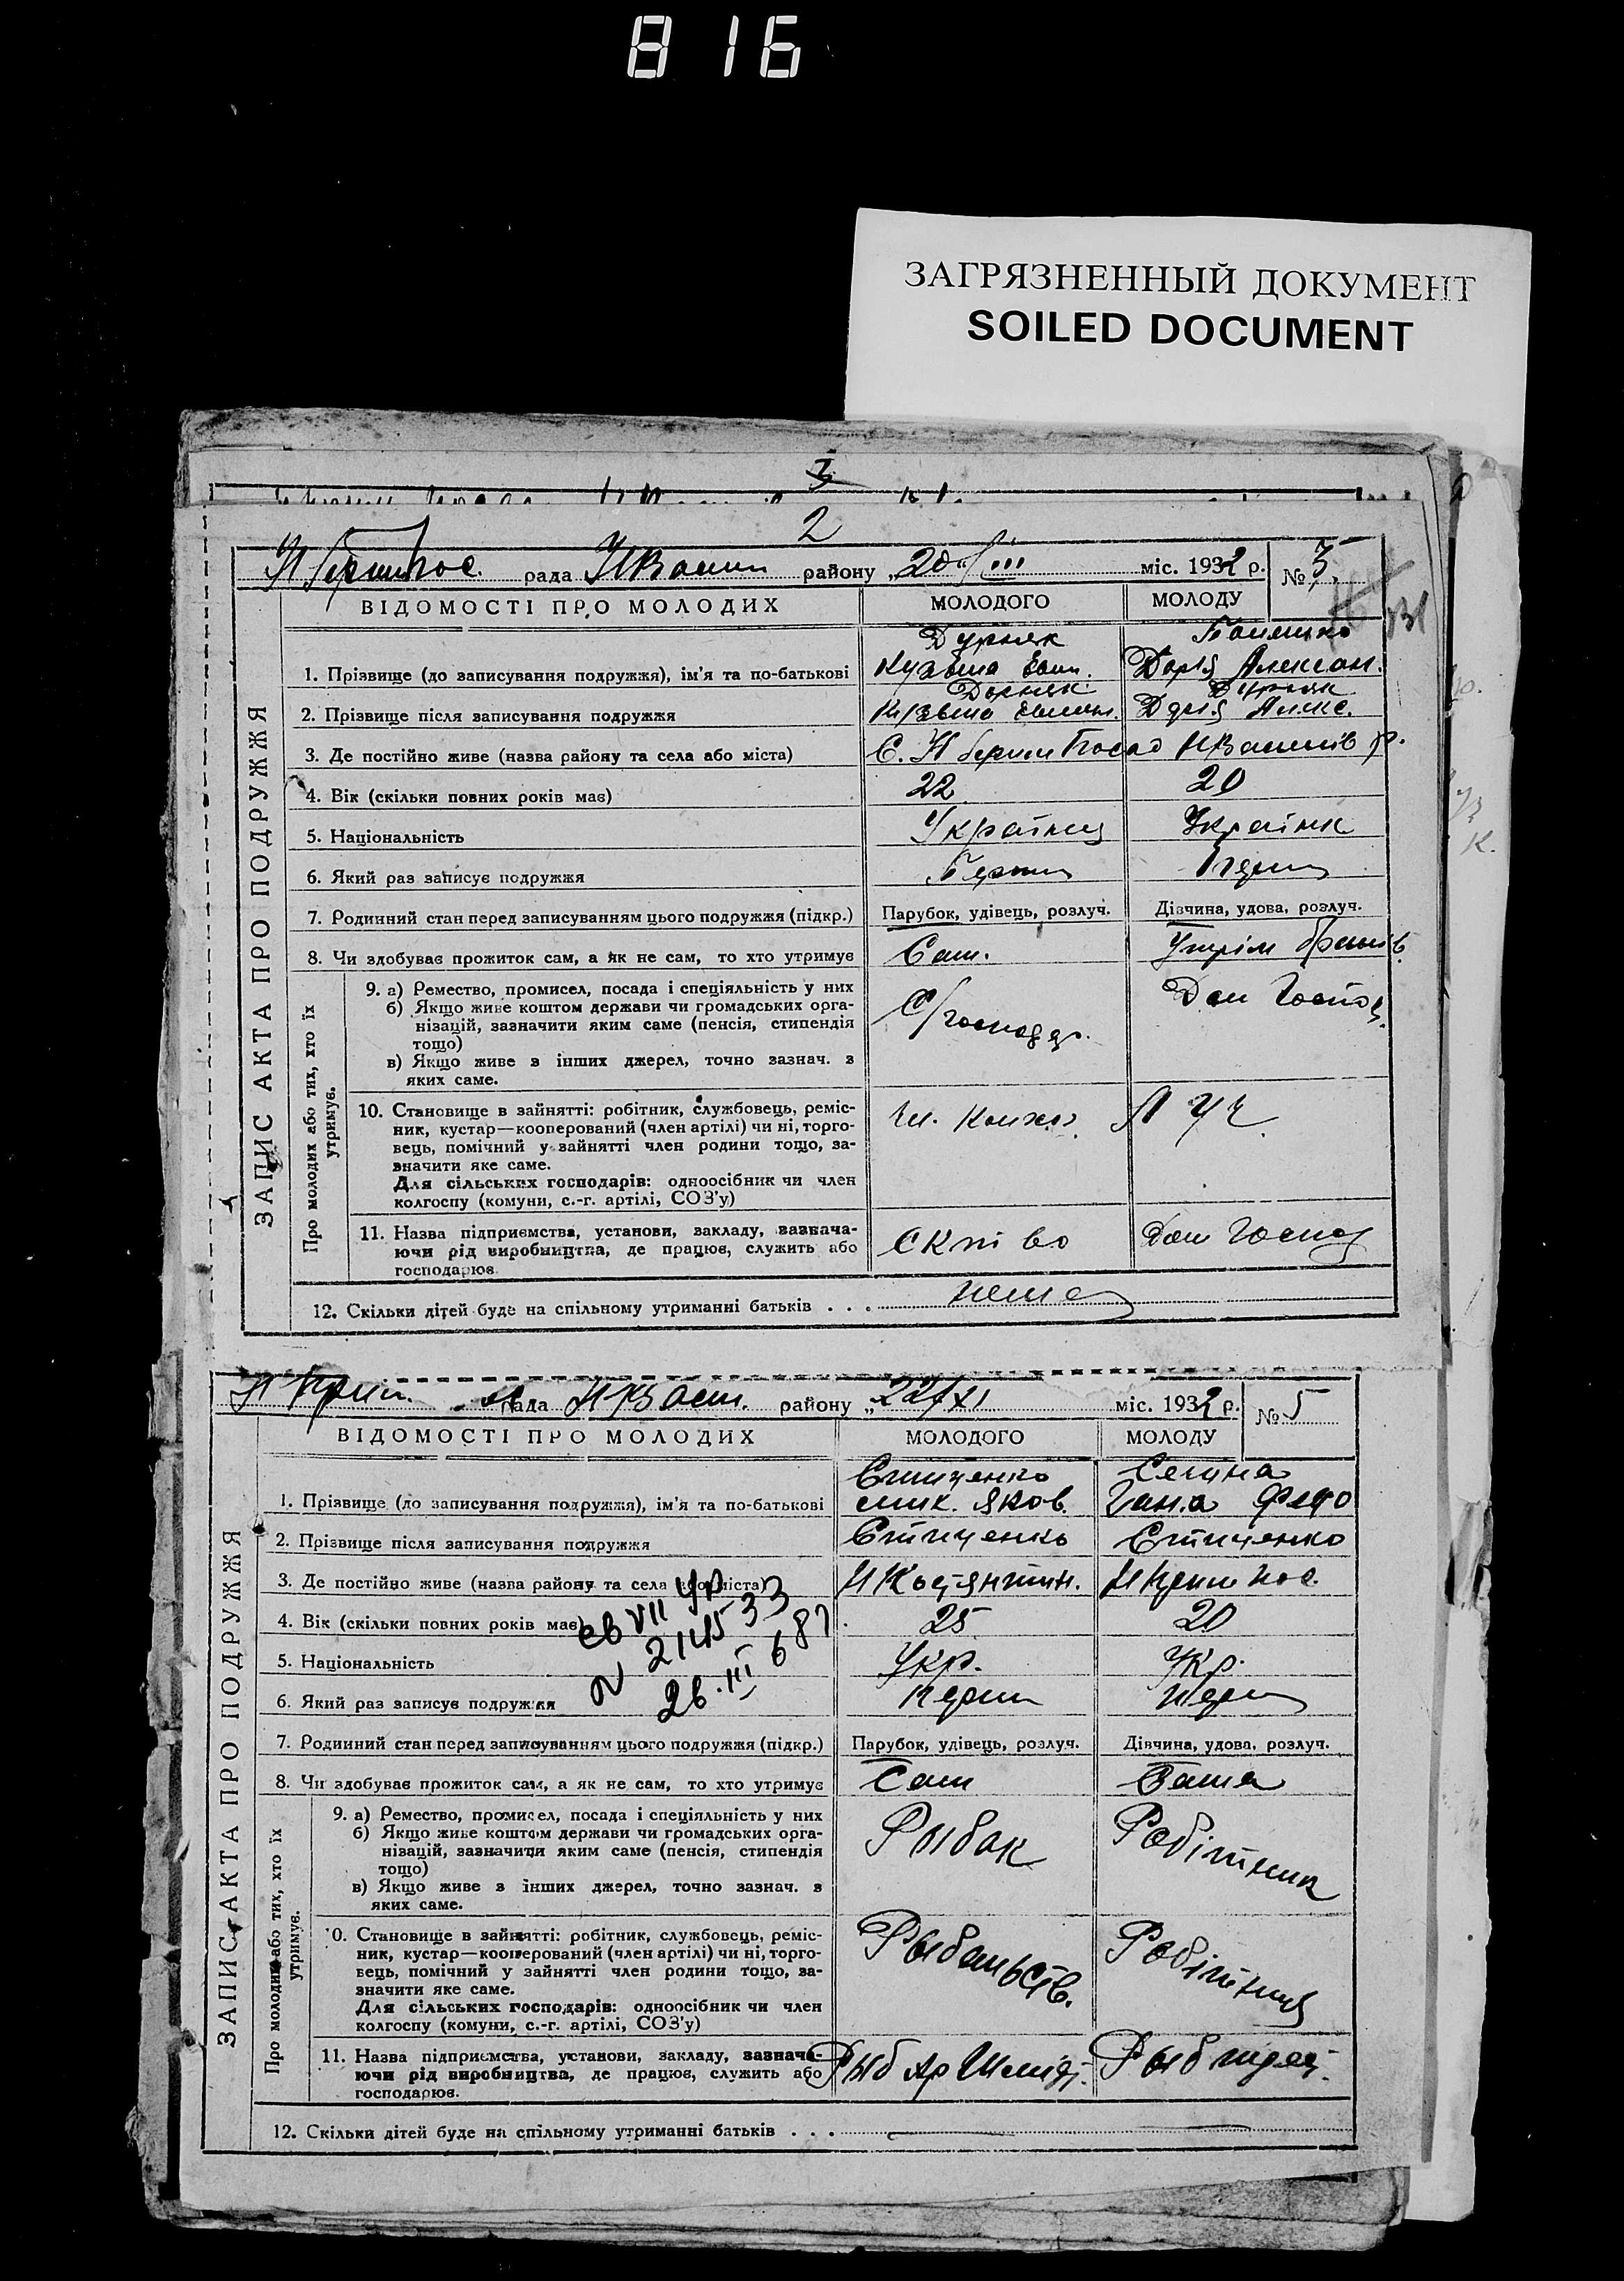 816
ЗАГРЯЗНЕННЫЙ ДОКУМЕНТ
SOILED DOCUMENT
2
рада районy „20“/III міс. 1932 р. № 3
ВІДОМОСТІ ПРО МОЛОДИХ МОЛОДОГО МОЛОДУ
ЗАПИС АКТА ПРО ПОДРУЖЖЯ
1. Прізвище (до записування подружжя), ім'я та по-батькові Дурняк Дарія Алексан.
2. Прізвище після записування подружжя Дурняк Дарія Алекс.
3. Де постійно живе (назва району та села або міста)
4. Вік (скільки повних років має) 22 20
5. Національність Українец Українк
6. Який раз записує подружжя Перши Перш
7. Родинний стан перед записуванням цього подружжя (підкр.) Парубок, удівець, розлуч. Дівчина, удова, розлуч.
8. Чи здобуває прожиток сам, а як не сам, то хто утримує Сам.
Про молодих або тих, хто їх утримує.
9. а) Ремество, промисел, посада і спеціяльність у них
б) Якщо живе коштом держави чи громадських орга-
нізацій, зазначити яким саме (пенсія, стипендія
тощо)
в) Якщо живе з інших джерел, точно зазнач. з
яких саме.
С/господар. Дом Госпо
10. Становище в зайнятті: робітник, службовець, реміс-
ник, кустар—кооперований (член артілі) чи ні, торго-
вець, помічний у зайнятті член родини тощо, за-
значити яке саме.
Для сільських господарів: одноосібник чи член
колгоспу (комуни, с.-г. артілі, СОЗ'у)
Чл. Колхоз
11. Назва підприємства, установи, закладу, зазнача-
ючи рід виробництва, де працює, служить або
господарює.
Дом Госпо
12. Скільки дітей буде на спільному утриманні батьків . . . нема
рада районy „22/XI міс. 1932 р. № 5
ВІДОМОСТІ ПРО МОЛОДИХ МОЛОДОГО МОЛОДУ
ЗАПИС АКТА ПРО ПОДРУЖЖЯ
1. Прізвище (до записування подружжя), ім'я та по-батькові мик. Яков. Ганна Федо
2. Прізвище після записування подружжя
3. Де постійно живе (назва району та села або міста) Н Костянтин.
4. Вік (скільки повних років має) 25 20
5. Національність Укр. Укр.
6. Який раз записує подружжя Перши Перш
св VII УР
№ 214533
26.III 687
7. Родинний стан перед записуванням цього подружжя (підкр.) Парубок, удівець, розлуч. Дівчина, удова, розлуч.
8. Чи здобуває прожиток сам, а як не сам, то хто утримує Сам Сама
Про молодих або тих, хто їх утримує.
9. а) Ремество, промисел, посада і спеціяльність у них
б) Якщо живе коштом держави чи громадських орга-
нізацій, зазначити яким саме (пенсія, стипендія
тощо)
в) Якщо живе з інших джерел, точно зазнач. з
яких саме.
Рыбак Робітник
10. Становище в зайнятті: робітник, службовець, реміс-
ник, кустар—кооперований (член артілі) чи ні, торго-
вець, помічний у зайнятті член родини тощо, за-
значити яке саме.
Для сільських господарів: одноосібник чи член
колгоспу (комуни, с.-г. артілі, СОЗ'у)
Робітниц
11. Назва підприємства, установи, закладу, зазнача-
ючи рід виробництва, де працює, служить або
господарює.
Рыб Ар
12. Скільки дітей буде на спільному утриманні батьків . . .